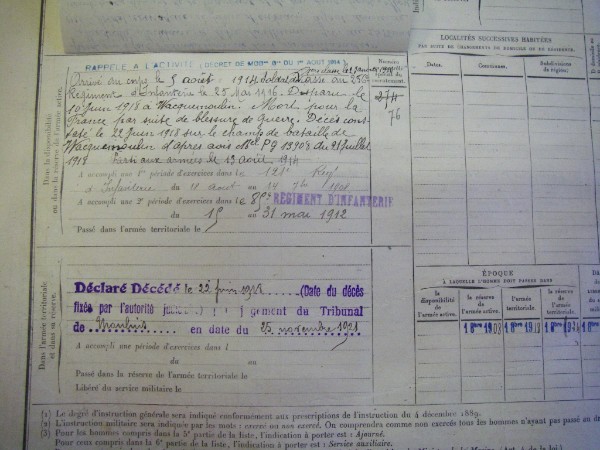 RAPPELÉ A L'ACTIVITÉ (DÉCRET DE MOB^on G^le DU 1^er AOUT 1914)
Arrivé au corps le 5 août 1914 Soldat de 2e classe au
Régiment d'Infanterie le 25 Mai 1916. Disparu le
10 juin 1918 à Wacquemoulin. Mort pour la
France par suite de blessure de Guerre. Décès cons-
taté le 22 Juin 1918 sur le champ de bataille de
Wacquemoulin d'après avis PG 13903 du 21 juillet
1918 Parti aux armées le 13 août 1914
A accompli une 1re période d'exercices dans le Reg^t
d'Infanterie du au
A accompli une 2e période d'exercices dans le RÉGIMENT D'INFANTERIE
du 15 au 31 mai 1912
Passé dans l'armée territoriale le
Déclaré Décédé le 22 juin 1918 (Date du décès
fixée par l'autorité jugement du Tribunal
de en date du 25 novembre 1921
A accompli une période d'exercices dans l
du au
Passé dans la réserve de l'armée territoriale le
Libéré du service militaire le
Dans la disponibilité
ou dans la réserve de l'armée active.
Dans l'armée territoriale
et dans sa réserve.
Numéro
274
76
LOCALITÉS SUCCESSIVES HABITÉES
PAR SUITE DE CHANGEMENTS DE DOMICILE OU DE RÉSIDENCE.
Dates.
Communes.
Subdivisions
de région.
ÉPOQUE
A LAQUELLE L'HOMME DOIT PASSER DANS
la disponibilité
de
l'armée active.
la réserve
de
l'armée active.
l'armée
territoriale.
la réserve
de l'armée
territoriale.
(1) Le degré d'instruction générale sera indiqué conformément aux prescriptions de l'instruction du 4 décembre 1889.
(2) L'instruction militaire sera indiquée par les mots : exercé ou non exercé. On comprendra comme non exercés tous les hommes n'ayant pas passé au
(3) Pour les hommes compris dans la 5e partie de la liste, l'indication à porter est : Ajourné.
Pour ceux compris dans la 6e partie de la liste, l'indication à porter est : Service auxiliaire.